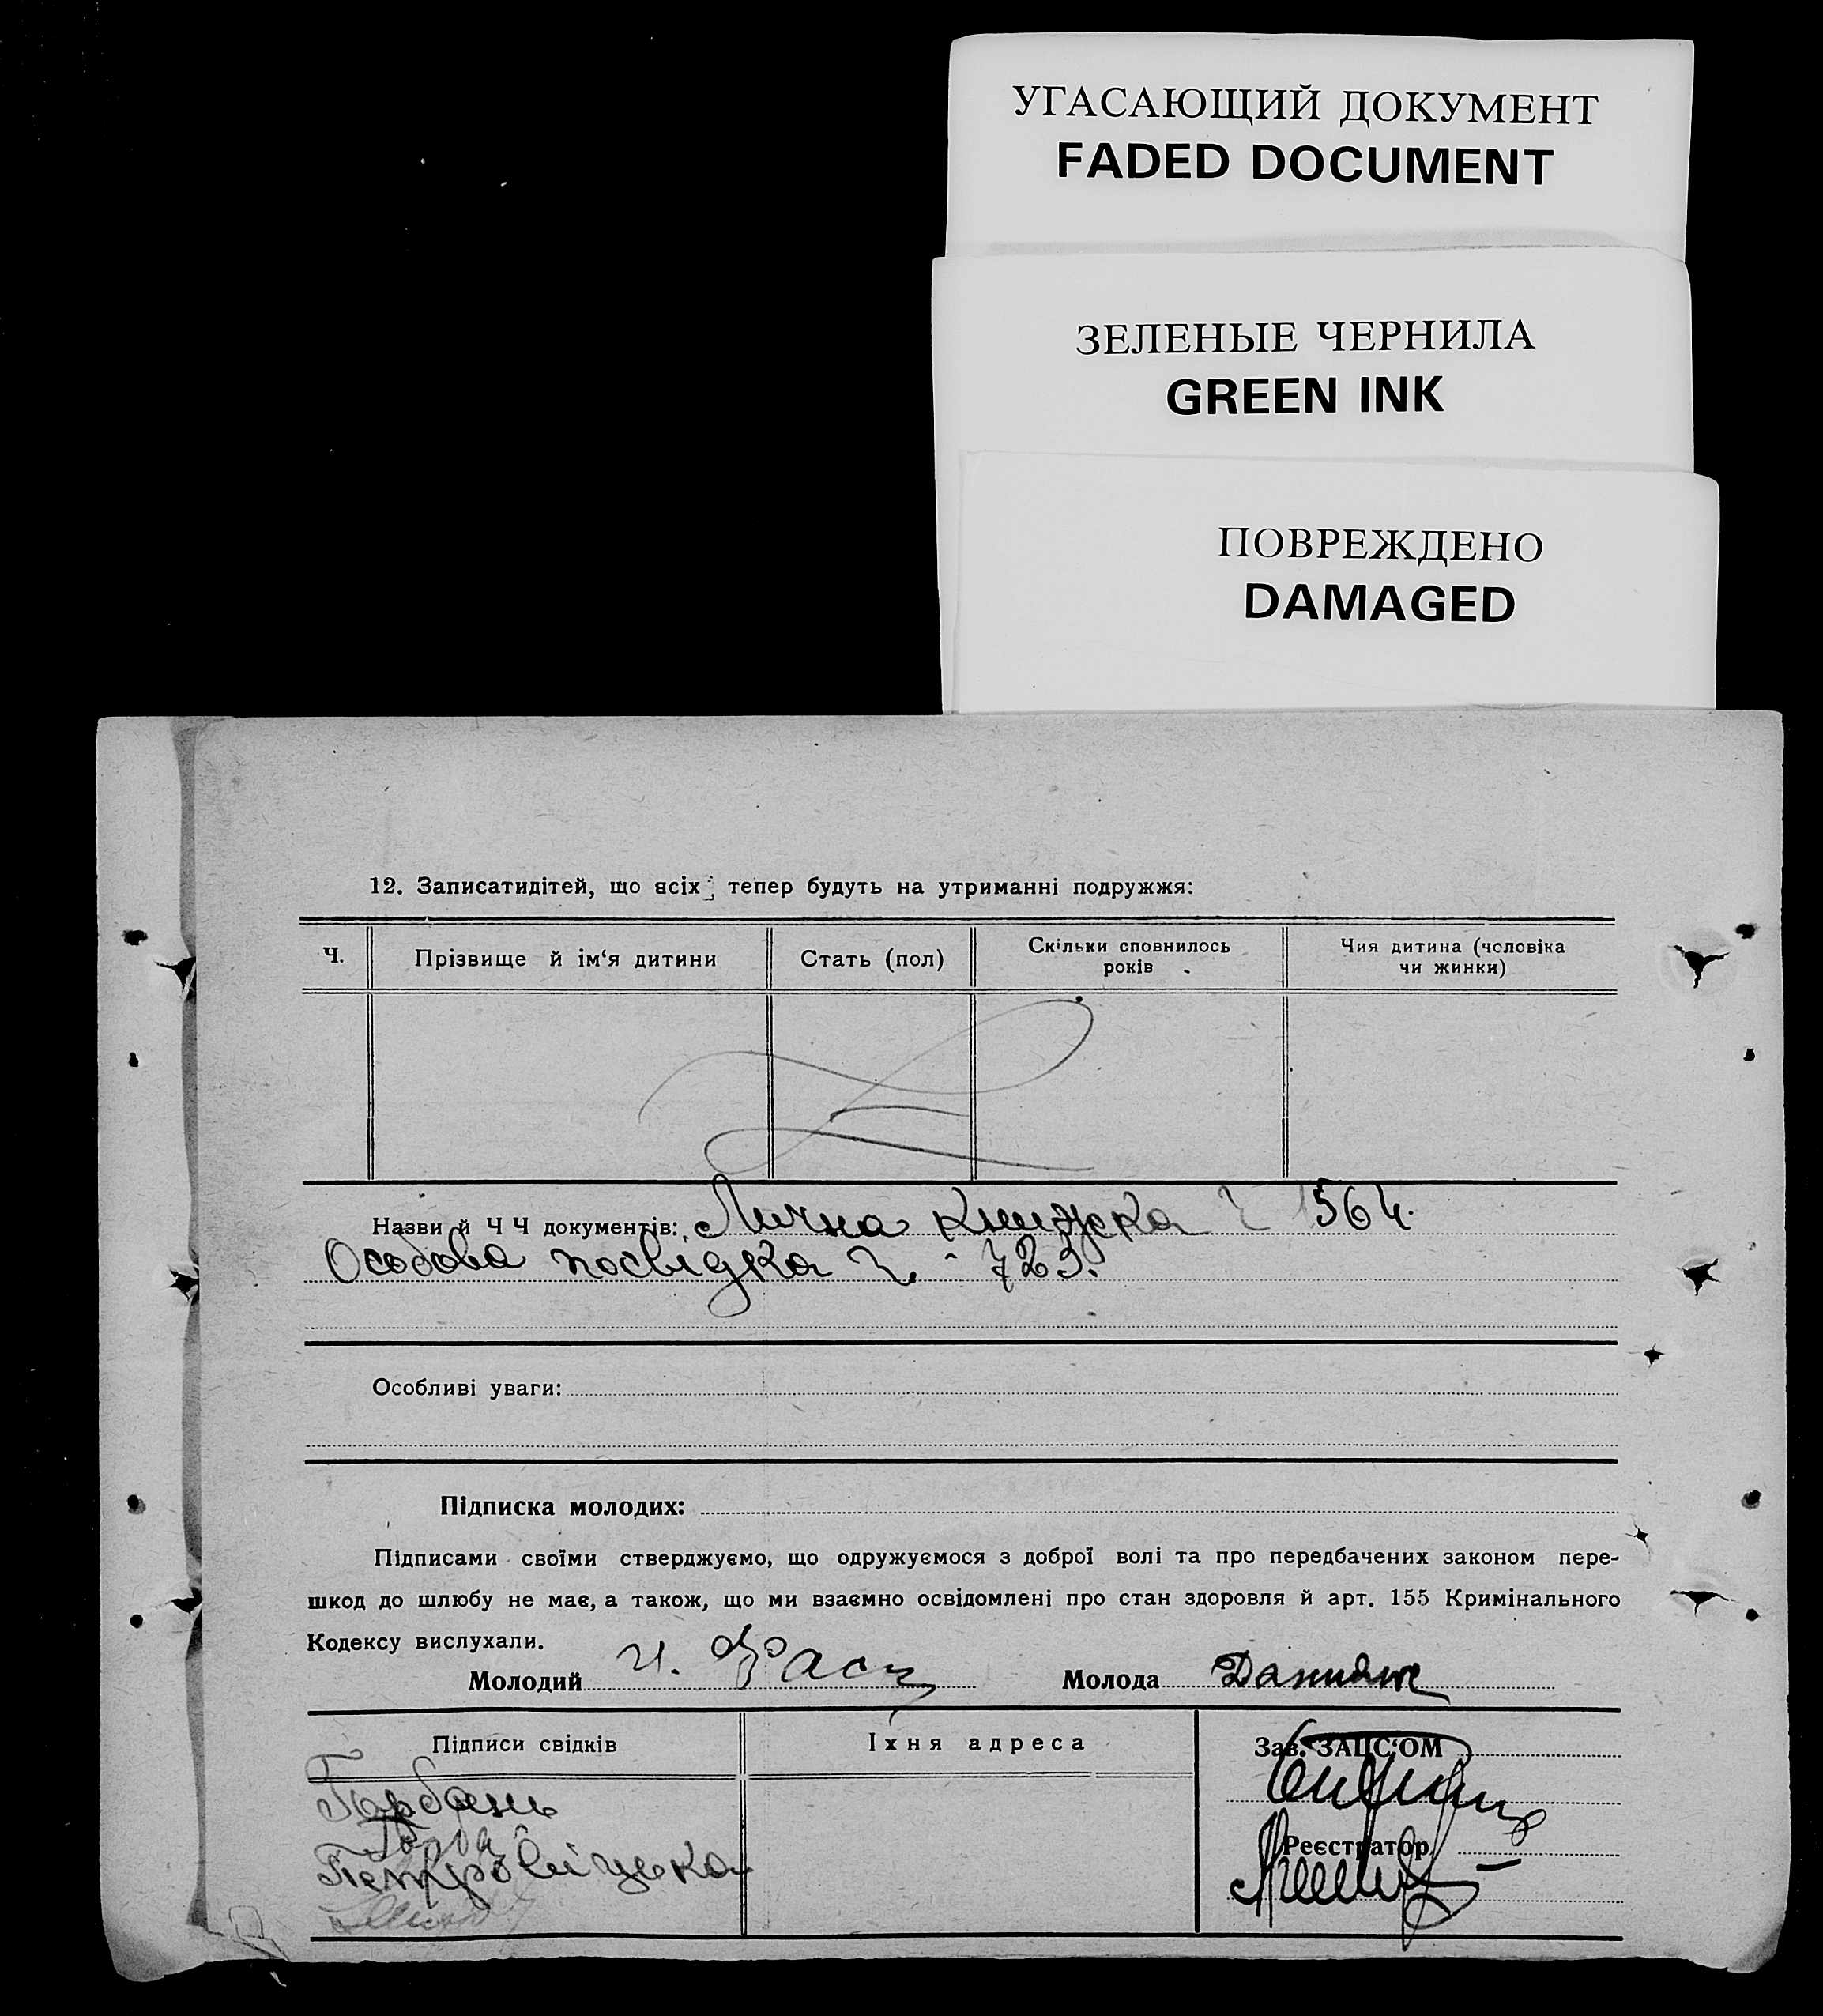 УГАСАЮЩИЙ ДОКУМЕНТ
FADED DOCUMENT
ЗЕЛЕНЫЕ ЧЕРНИЛА
GREEN INK
ПОВРЕЖДЕНО
DAMAGED
12. Записатидітей, що всіх тепер будуть на утриманні подружжя:
Ч.
Прізвище й ім‘я дитини
Стать (пол)
Скільки сповнилось
років
Чия дитина (чоловіка
чи жинки)
Назви й Ч Ч документів: Лична книжка Ч 1564.
Особова посвідка Ч. - 723.
Особливі уваги:
Підписка молодих:
Підписами своїми стверджуємо, що одружуємося з доброї волі та про передбачених законом пере-
шкод до шлюбу не має, а також, що ми взаємно освідомлені про стан здоровля й арт. 155 Кримінального
Кодексу вислухали.
Молодий
Молода
Підписи свідків
Їхня адреса
Зав. ЗАЦС‘ОМ
Горбань
Реєстратор
Петровіцька